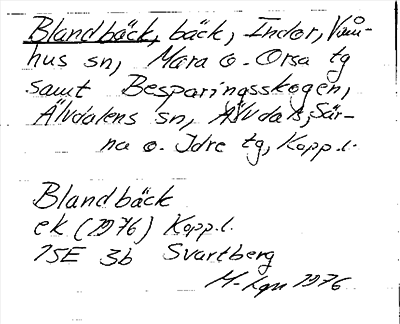 Blandbäck, bäck, Indor, Våm-
hus sn, Mora o. Orsa tg
samt Besparingsskogen,
Älvdalens sn, Älvdals, Sär-
na o. Idre tg, Kopp.l.
Blandbäck
ek (1976) Kopp.l.
15E 3b Svartberg
M-Lgn 1976